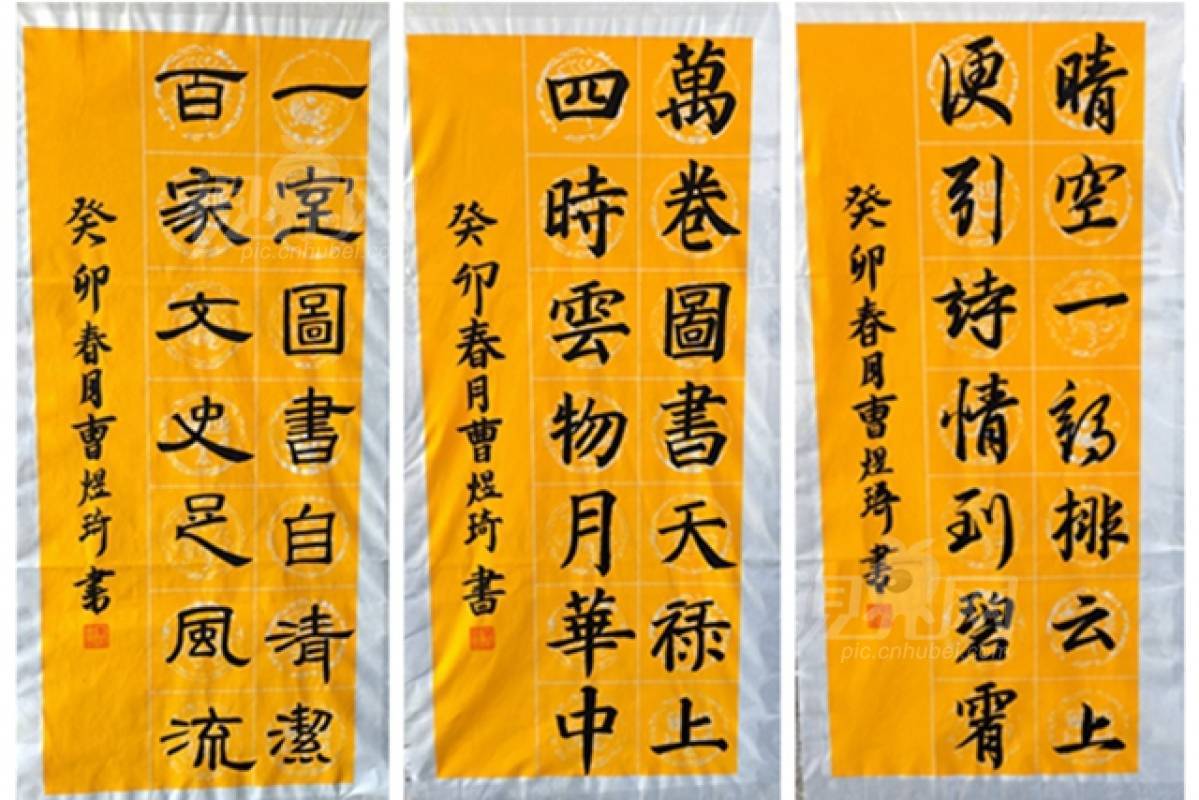 一室圖書自清潔
百家文史足風流
癸卯春月曹煜琦書
萬卷圖書天祿上
四時雲物月華中
癸卯春月曹煜琦書
晴空一鶴排云上
便引詩情到碧霄
癸卯春月曹煜琦書
pic.cnhubei.com
pic.cnhubei.com